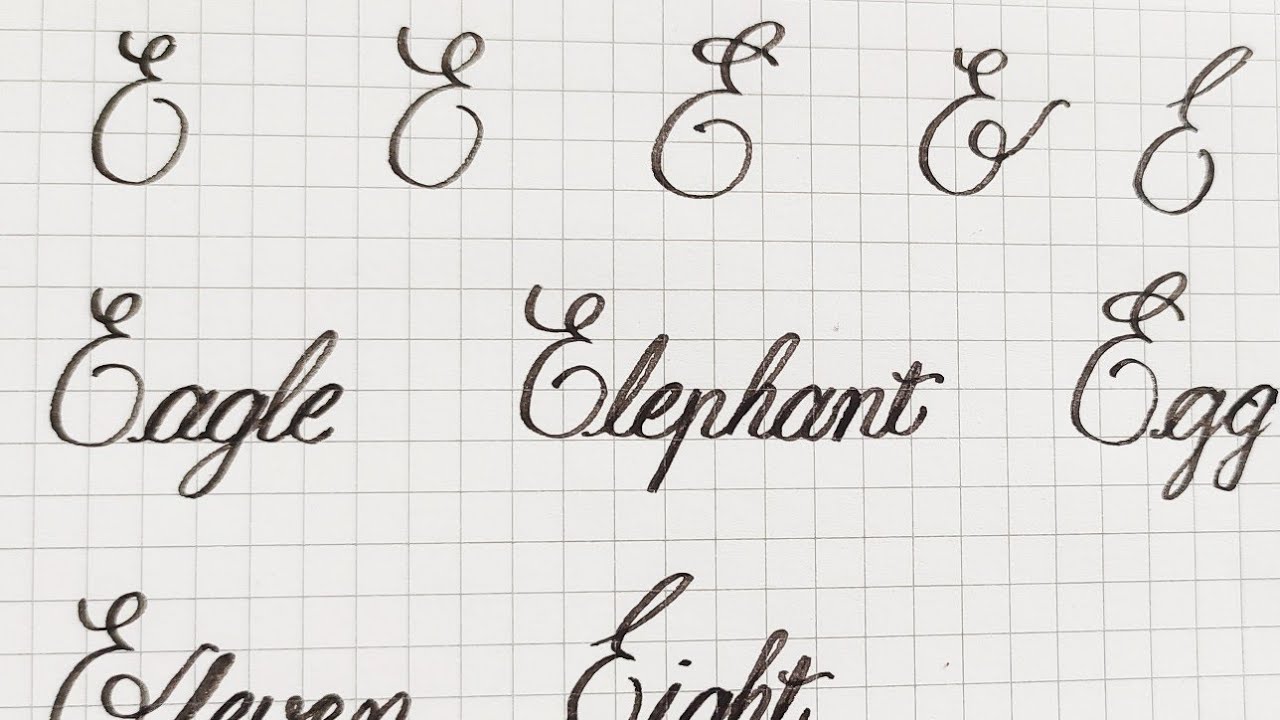 E E E E E
Eagle Elephant Egg
Eleven Eight